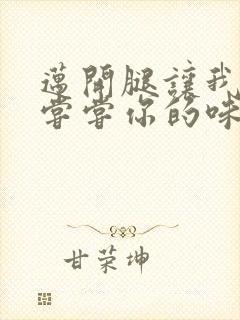 邁開腿讓我
嘗嘗你的味
甘荣坤